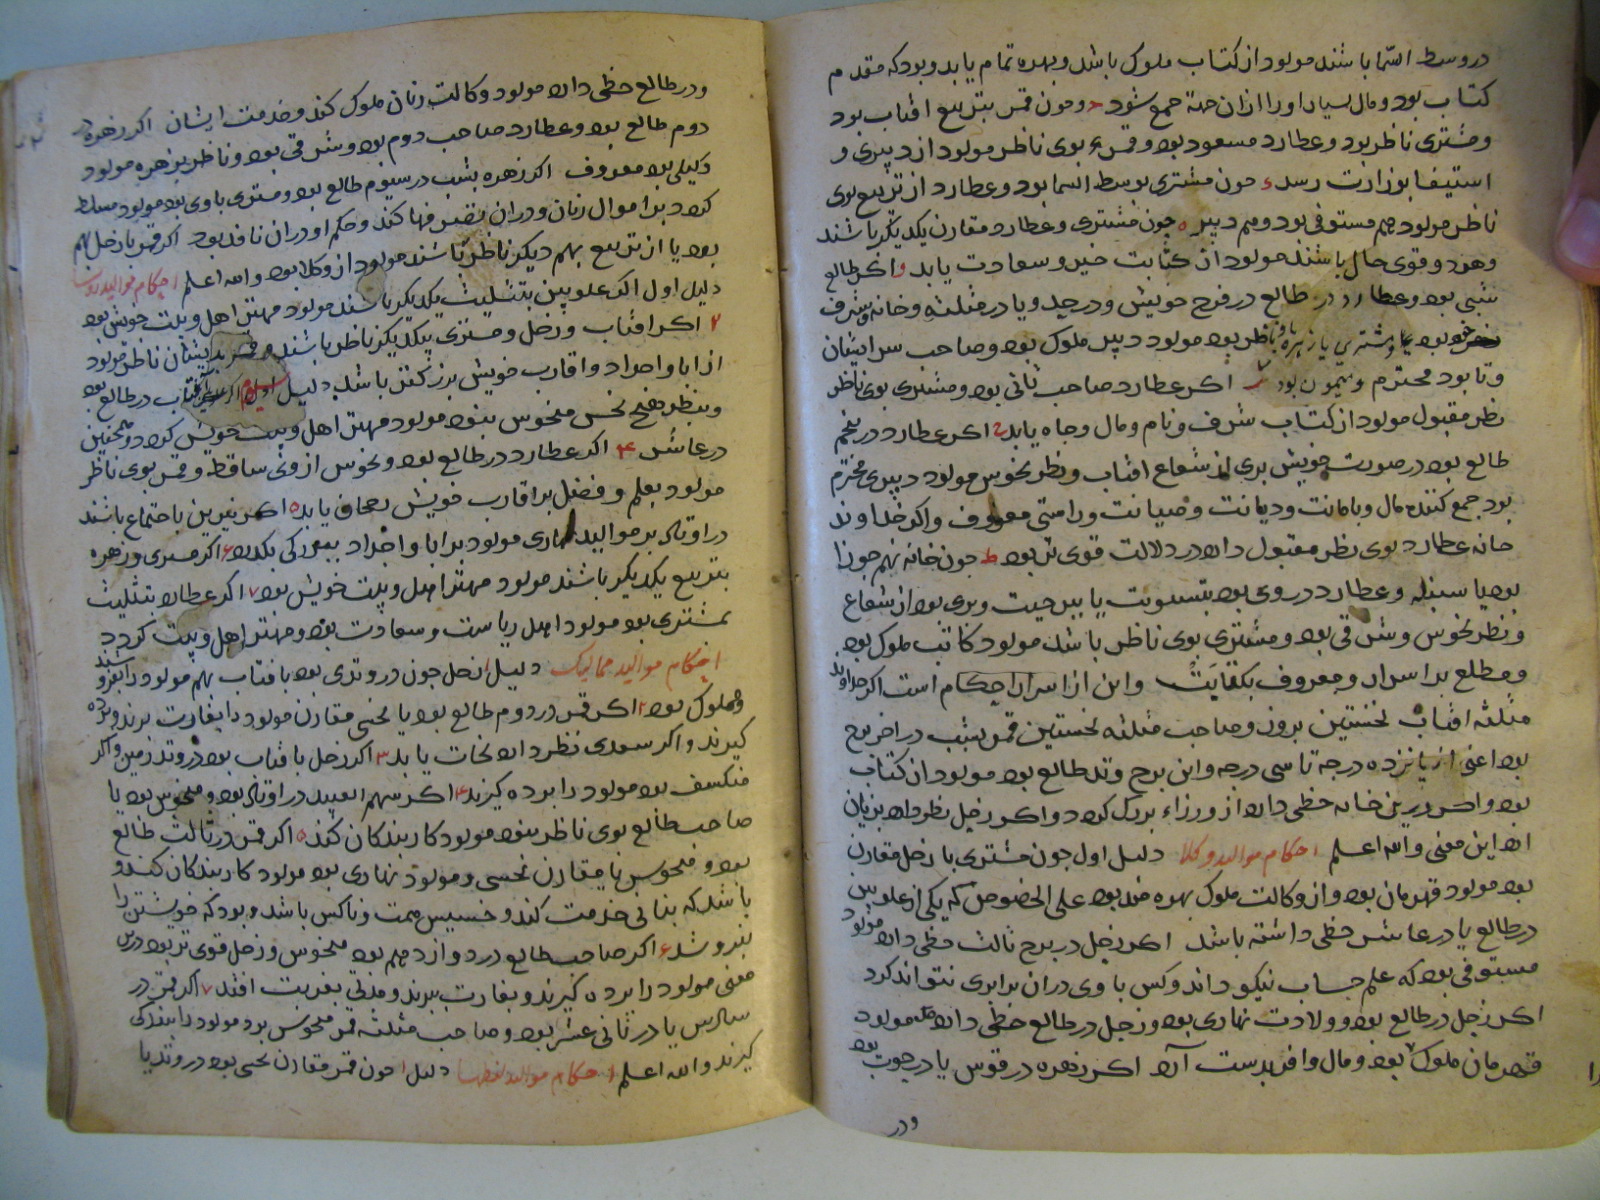 در وسط السما باشند مولود از کتاب ملوک باشد و بهره تمام یابد و بود که مقدم
کتاب بود و مال بسیار او را ازان جهة جمع شود و چون قمر بتربیع افتاب بود
و مشتری ناظر بود و عطارد مسعود بود و قمر بوی ناظر مولود از دبیری و
استیفا بوزارت رسد چون مشتری بوسط السما بود و عطارد از تربیع بوی
ناظر مولود هم مستوفی بود و هم دبیر ه چون مشتری و عطارد مقارن یکدیگر باشند
و هردو قوی حال باشند مولود از کتابت خیر و سعادت یابد و اکر طالع
شبی بود و عطارد در طالع در فرح خویش و در حد و یا در مثلثه و خانه و شرف
بود یا مشتری یا زهره ناظر بود مولود دبیر ملوک بود و صاحب سر ایشان
و تا بود محترم و میمون بود اکر عطارد صاحب ثانی بود و مشتری بوی ناظر
نظر مقبول مولود از کتاب شرف و نام و مال و جاه یابد اکر عطارد در پنجم
طالع بود در صورت خویش بری از شعاع افتاب و نظر نحوس مولود دبیری محترم
بود جمع کننده مال و با امانت و دیانت و صیانت و راستی معروف و اکر خداوند
خانه عطارد بوی نظر مقبول دارد در دلالت قوی تر بود ط چون خانه نهم جوزا
بود یا سنبله و عطارد در وی بود بتسویت یا بیرحیت و بری بود از شعاع
و نظر نحوس و شرقی بود و مشتری بوی ناظر باشد مولود کاتب ملوک بود
و مطلع بر اسرار و معروف بکفایت و این از اسرار احکام است اکر خداوند
مثلثه افتاب نخستین بروز و صاحب مثلثه نخستین قمر بشب در اخر برج
بود اعنی از پانزده درجه تا سی درجه و این برج وتد طالع بود مولود از کتاب
بود و اکر درین خانه حظی دارد از وزراء بزرک کردد و اکر زحل نظر دارد بزیان
ارد این معنی و الله اعلم احکام موالید وکلا دلیل اول چون مشتری با زحل مقارن
بود مولود قهرمان بود و از وکالت ملوک بهره مند بود علی الخصوص که یکی از علویین
در طالع یا در عاشر حظی داشته باشد اکر زحل در برج ثالث حظی دارد مولود
مستوفی بود که علم حساب نیکو داند و کس با وی دران برابری نتواند کرد
اکر زحل در طالع بود و ولادت نهاری بود و زحل در طالع حظی دارد مولود
قهرمان ملوک بود و مال وافر بدست آرد اکر زهره در قوس یا در حوت بود
و در
و در طالع حظی دارد مولود وکالت زنان ملوک کند و خدمت ایشان اکر زهره در
دوم طالع بود و عطارد صاحب دوم بود و شرقی بود و ناظر بزهره مولود
وکیلی بود معروف اکر زهره بشب در سیوم طالع بود و مشتری با وی بود مولود مسلط
کردد بر اموال زنان و دران تصرفها کند و حکم او دران نافذ بود اکر قمر با زحل بهم
بود یا از تربیع بهم دیکر ناظر باشند مولود از وکلا بود و الله اعلم احکام موالید
دلیل اول اکر علویین بتثلیث یکدیکر باشند مولود مهتر اهل و بیت خویش بود
۲ اکر افتاب و زحل و مشتری بیکدیکر ناظر باشند و قمر بدیشان ناظر مولود
از ابا و اجداد و اقارب خویش بزرکتر باشد دلیل سوم اکر افتاب در طالع بود
و بنظر هیچ نحس منحوس نبود مولود مهتر اهل و بیت خویش کردد و همچنین
در عاشر ۴ اکر عطارد در طالع بود و نحوس از وی ساقط و قمر بوی ناظر
مولود بعلم و فضل بر اقارب خویش رجحان یابد ه اکر نیرین باجتماع باشند
در اوتاد بر موالید نهاری مولود بر ابا و اجداد بیفزاید بزرکی ۶ اکر مشتری و زهره
بتربیع یکدیکر باشند مولود مهتر اهل و بیت خویش بود ۷ اکر عطارد بتثلیث
مشتری بود مولود اهل ریاست و سعادت بود و مهتر اهل و بیت کردد
احکام موالید ممالیک دلیل ا زحل چون در وتدی بود با افتاب بهم مولود را بفروشند
و مملوک بود ۲ اکر قمر در دوم طالع بود با نحسی مقارن مولود را بغارت برند و برده
کیرند و اکر سعدی نظر دارد نجات یابد ۳ اکر زحل با افتاب بود در وتد زمین و اکر
منکسف بود مولود را برده کیرند ۴ اکر سهم العبید در اوتاد بود و منحوس بود یا
صاحب طالع بوی ناظر نبود مولود کار بندکان کند ه اکر قمر در ثالث طالع
بود و منحوس یا مقارن نحسی و مولود نهاری بود مولود کار بندکان کند و
باشد که بنانی خدمت کند و خسیس همت و ناکس باشد و بود که خویشتن را
بفروشد ۶ اکر صاحب طالع در دوازدهم بود منحوس و زحل قوی تر بود درین
معنی مولود را برده کیرند و بغارت ببرند و مدتی بغربت افتد ۷ اکر قمر در
سادس یا در ثانی عشر بود و صاحب مثلثه قمر منحوس بود مولود را ببندکی
کیرند و الله اعلم احکام موالید دلیل ا چون قمر مقارن نحسی بود در وتد یا